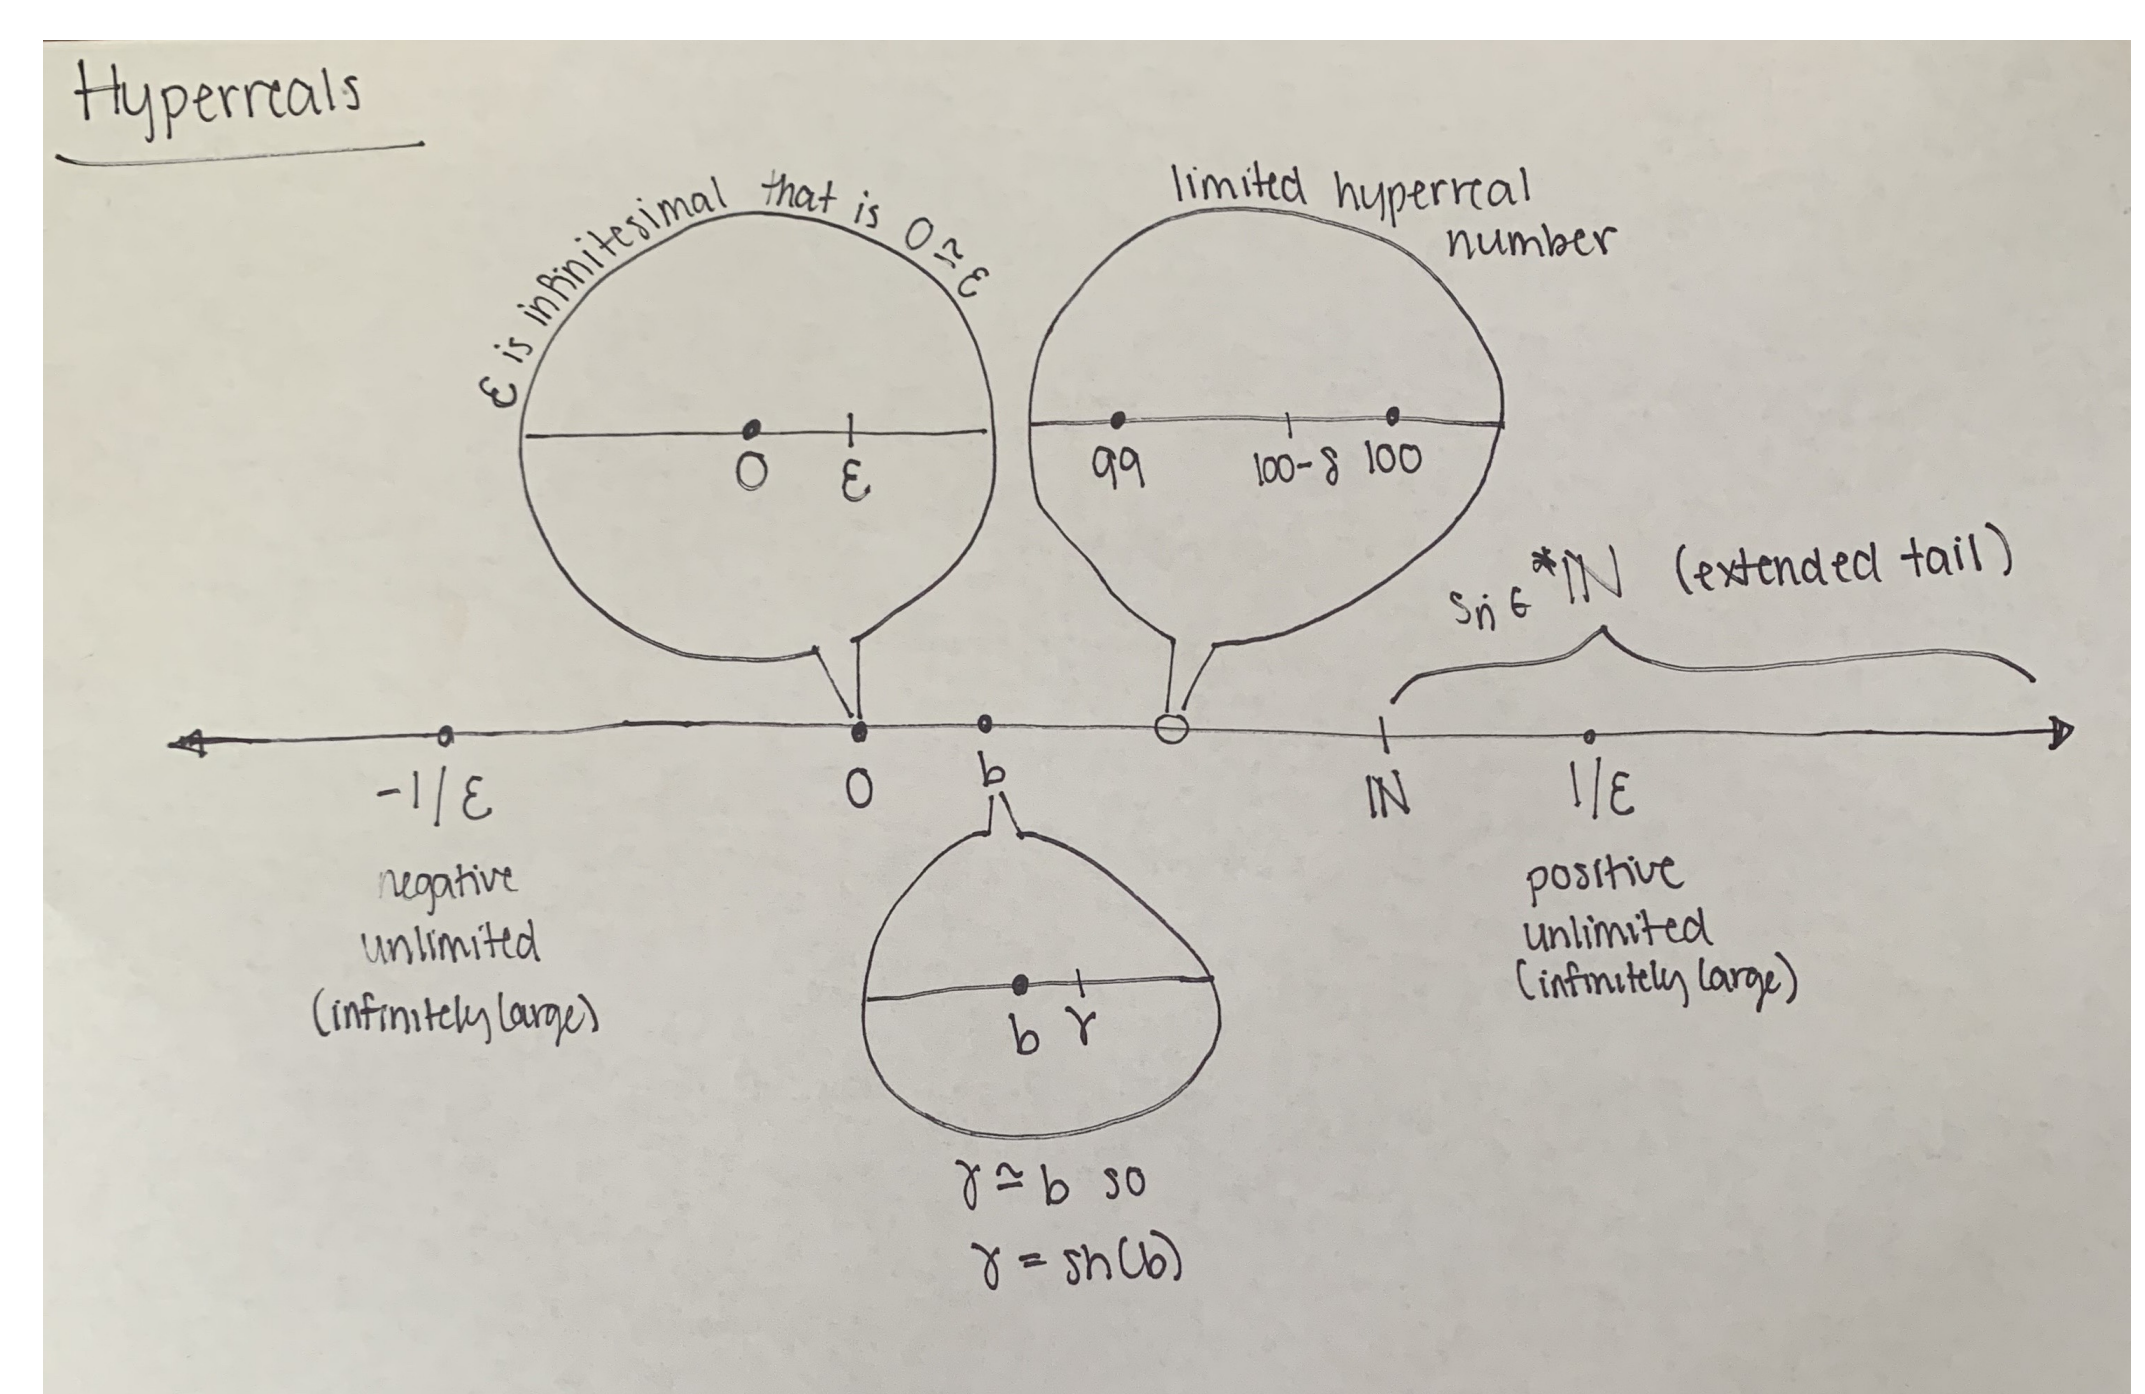 Hyperreals
ε is infinitesimal that is 0 ≃ ε
limited hyperreal
number
0 ε
99 100-δ 100
Sn ∈ *ℕ (extended tail)
-1/ε 0 b ℕ 1/ε
negative
unlimited
(infinitely large)
positive
unlimited
(infinitely large)
b γ
γ ≃ b so
γ = sh(b)